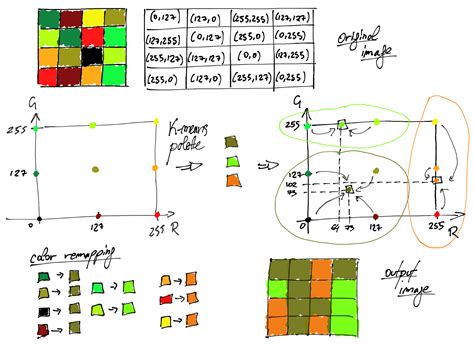 (0,127) (127,0) (255,255) (0,0)
(127,255) (0,127) (255,0) (0,255)
(255,127) (127,127) (0,0) (127,255)
(255,0) (127,0) (255,127) (127,255)
original
image
G
255
127
0
127
255 R
K-means
palette
G
255
127
102
73
0
64
73
127
255
R
color remapping
output
image